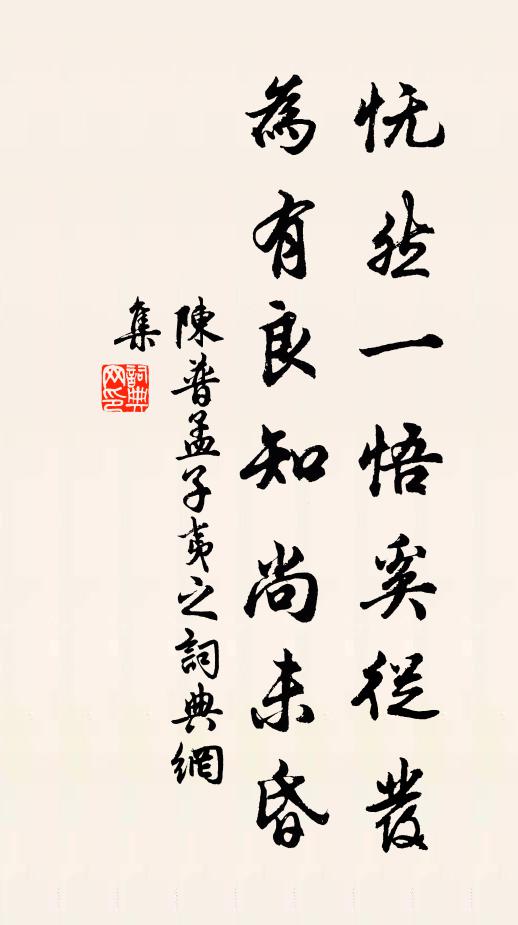 怃然一悟奚從發
為有良知尚未昏
陳普孟子夷之詞典網
集
詞典
网印